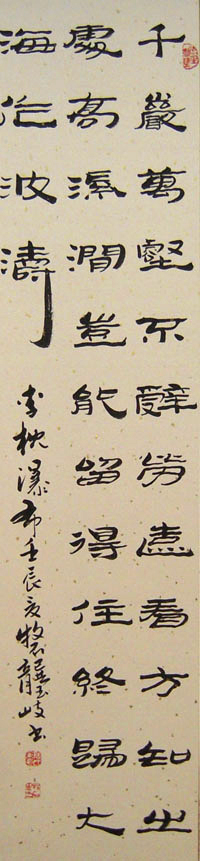 千巖萬壑不辭勞遠看方知出
處高溪澗豈能留得住終歸大
海作波濤
李忱瀑布壬辰夏牧石龔玉岐书